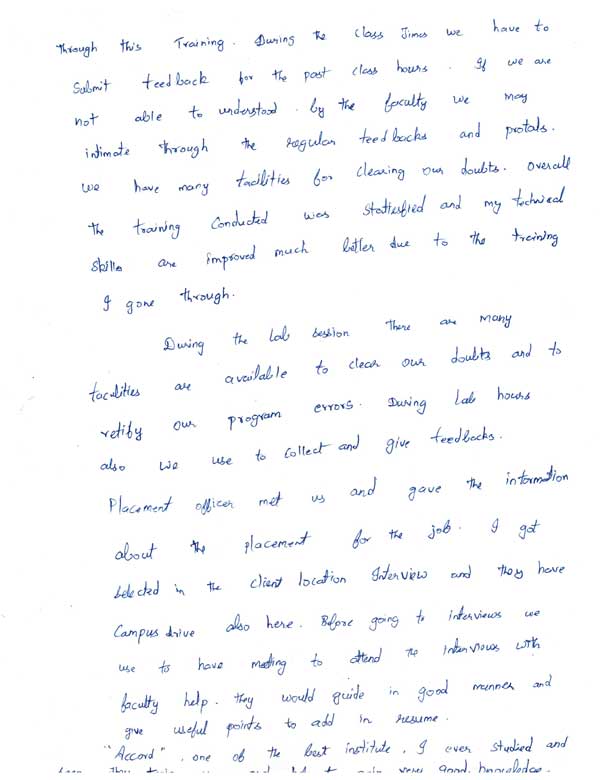 through this Training. During the class Times we have to
Submit feedback for the past class hours. If we are
not able to understood. by the faculty we may
intimate through the regular feedbacks and protals.
we have many facilities for clearing our doubts. overall
the training Conducted was Statiesfied and my technical
skills are improved much better due to the treining
I gone through.
During the Lab session there are many
facilities are available to clear our doubts and to
retify our program errors. During Lab hours
also we use to Collect and give feedbacks.
Placement officer met us and gave the information
about the placement for the job. I got
selected in the client location Interview and they have
Campus drive also here. Before going to interviews we
use to have meeting to attend the interviews with
faculty help. they would guide in good manner and
give useful points to add in resume.
"Accord", one of the best institute, I ever studied and
very good knowledge.